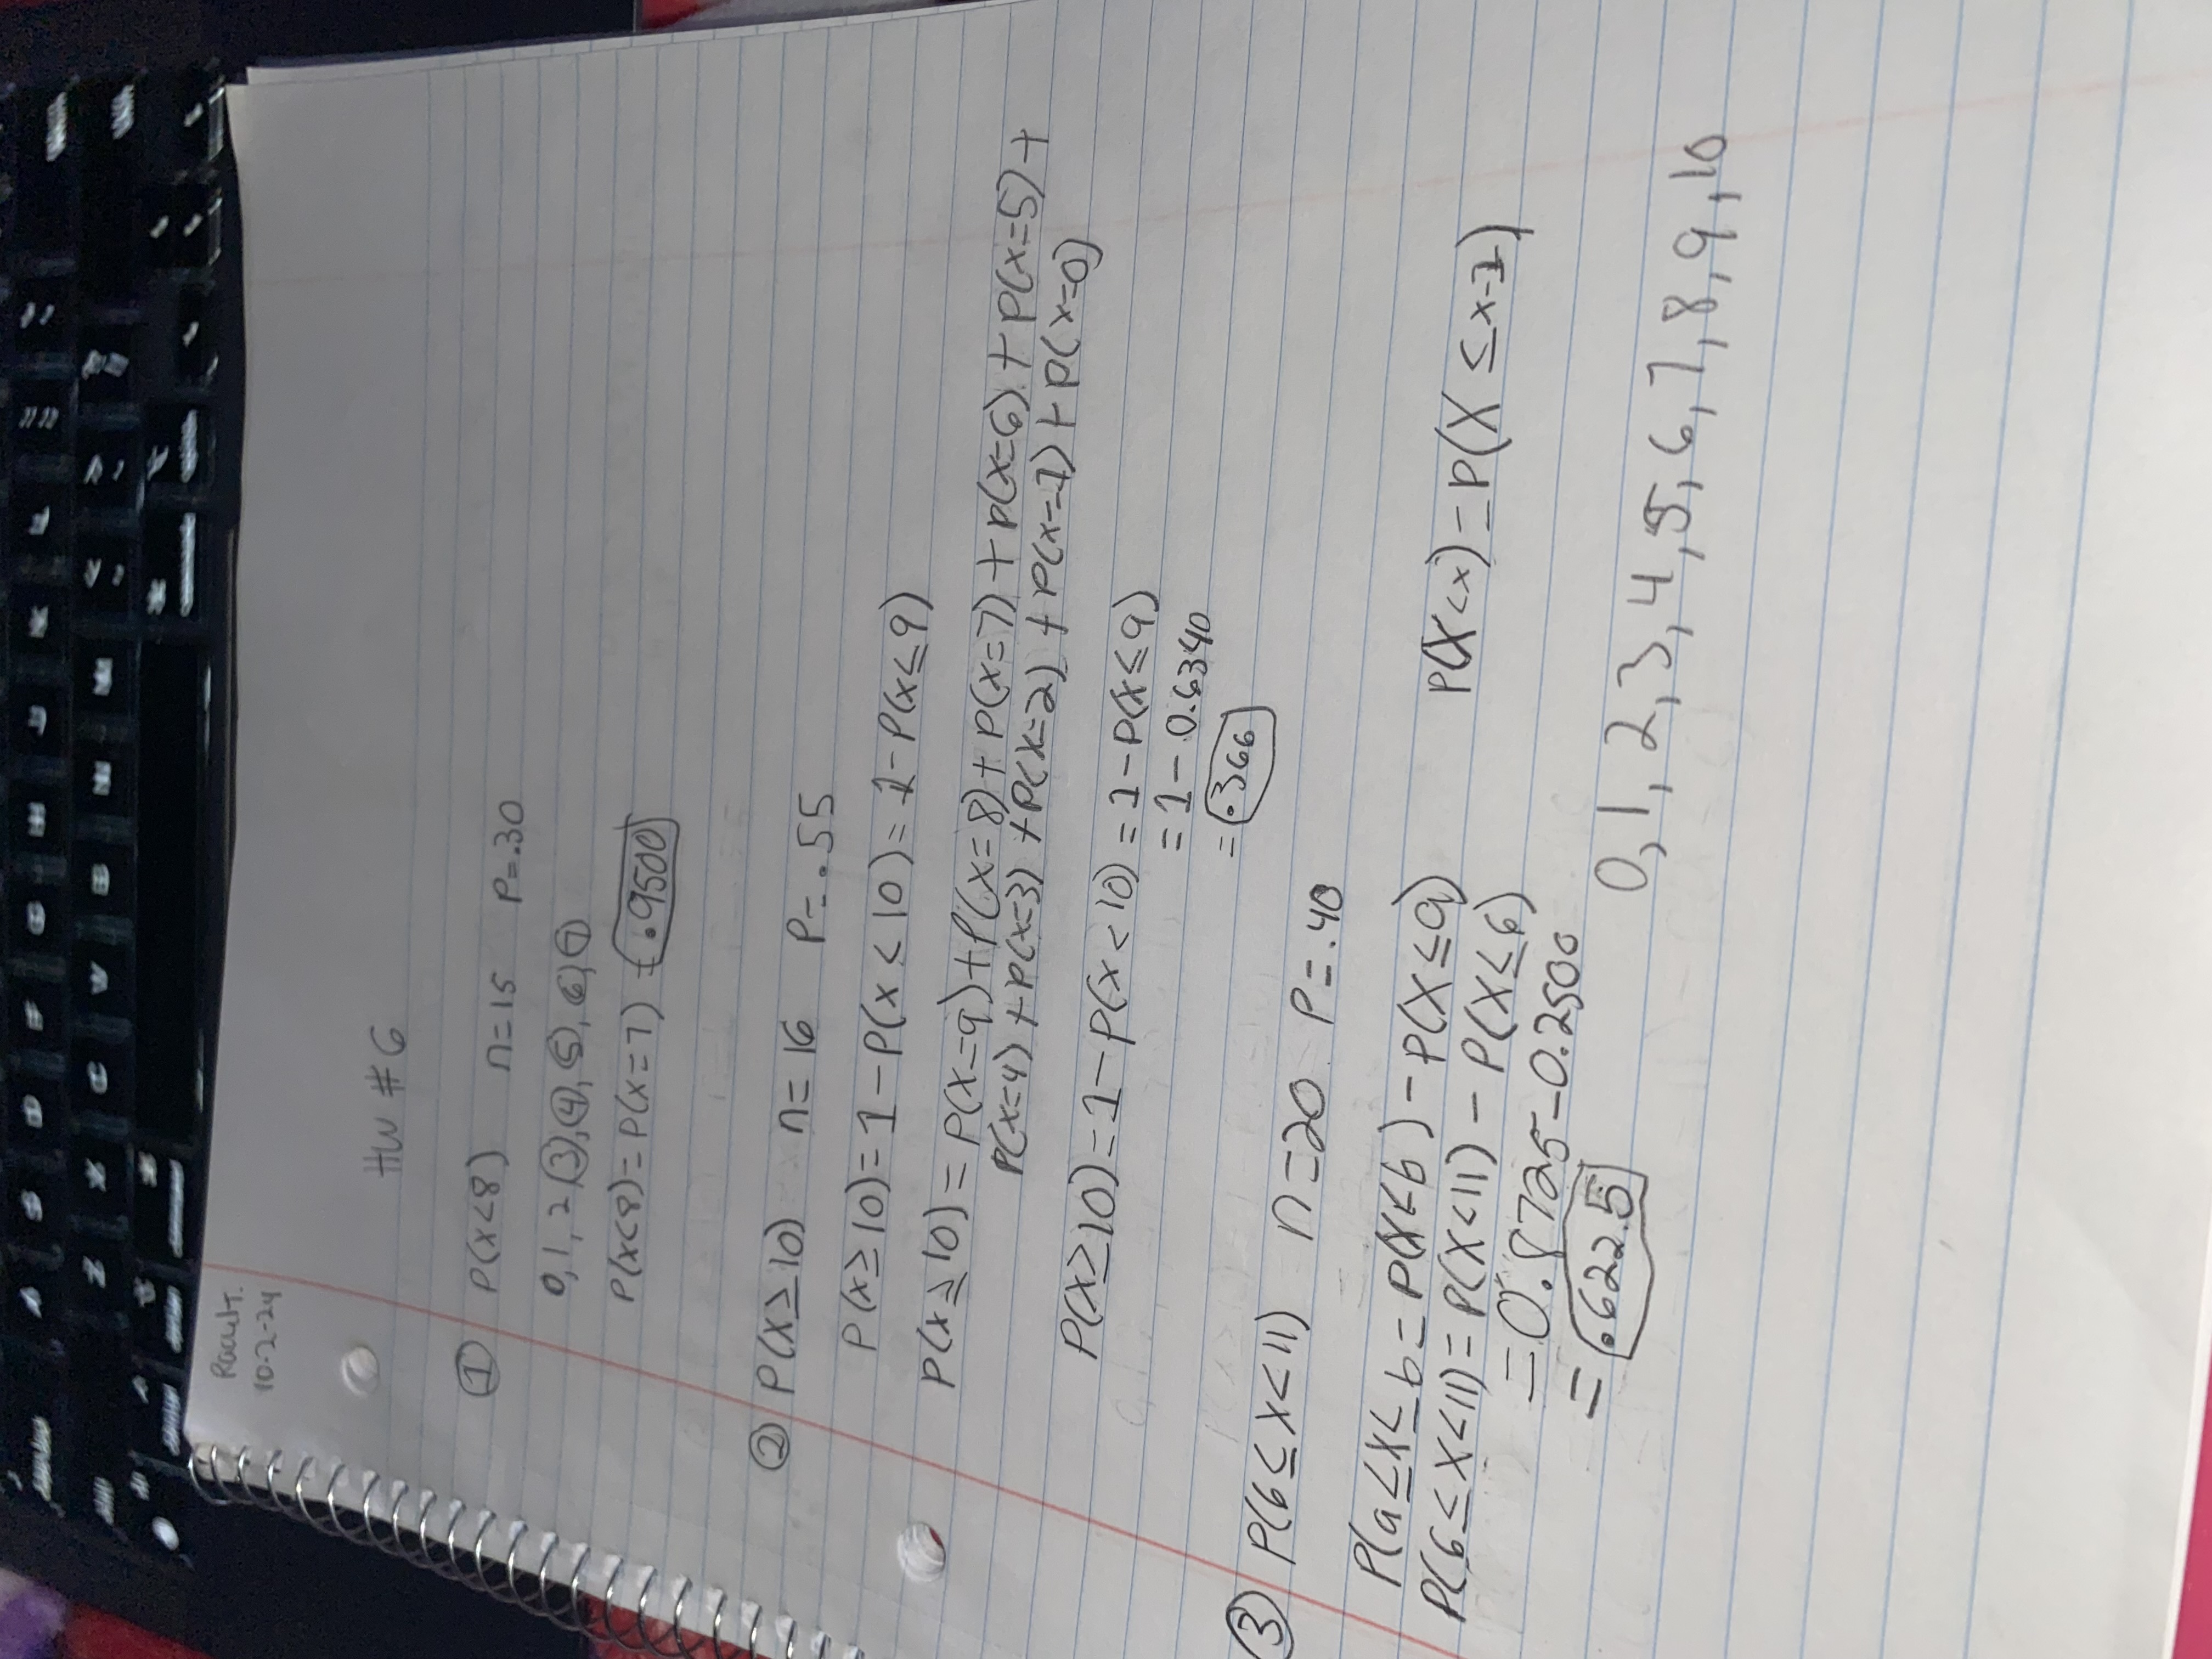 A S D F G H J K L
Z X C V B N M < >
command
option
Rachel T.
10-2-24
HW #6
① P(x<8) n=15 P=.30
0, 1, 2 ③, ④, ⑤, ⑥, ⑦
P(x<8) = P(x=7) = .9500
② P(x≥10) n= 16 P=.55
P(x≥10)=1-P(x<10)=1-P(x≤9)
P(x≥10)= P(x=9)+P(x=8)+P(x=7)+P(x=6)+P(x=5)+
P(x=4)+P(x=3)+P(x=2)+P(x=1)+P(x=0)
P(x≥10)=1-P(x<10)=1-P(x≤9)
=1-0.6340
= .366
③ P(6≤x<11) n=20 P=.40
P(a≤X≤b=P(X<b)-P(X≤a)
P(6≤X<11)=P(X<11)-P(X≤6) P(X<x)=P(X≤x-1)
=0.8725-0.2500
= .622.5
0, 1, 2, 3, 4, 5, 6, 7, 8, 9, 10